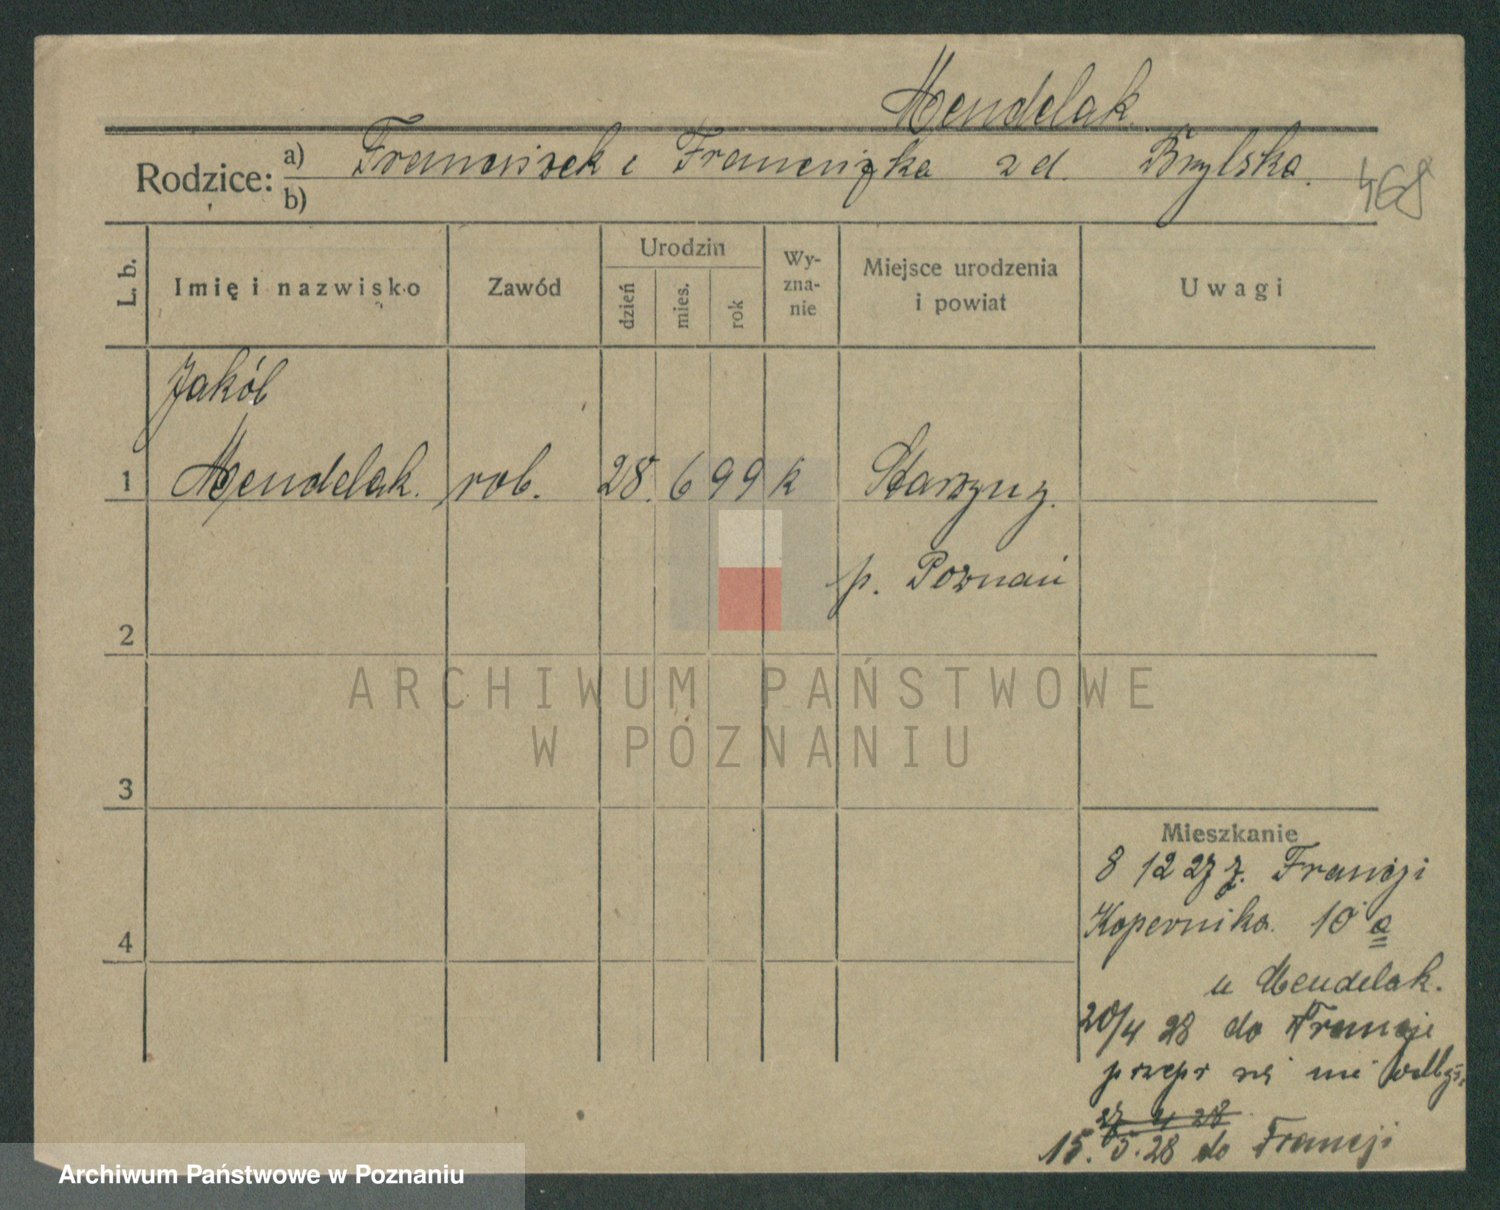 Mendelak.
Rodzice: a) Franciszek i Franciszka z d. Brylska.
b)
468
L. b. Imię i nazwisko Zawód Urodzin dzień mies. rok Wyznanie Miejsce urodzenia i powiat Uwagi
Jakób
1 Mendelak. rob. 28. 6 99 k
p. Poznań
2
ARCHIWUM PAŃSTWOWE
W POZNANIU
3
Mieszkanie
8 12 27 z. Francji
Kopernika. 10 a
4
u Mendelak.
20/4 28 do Francje
przepr się nie
27 4 28
15. 5. 28 do Francji
Archiwum Państwowe w Poznaniu